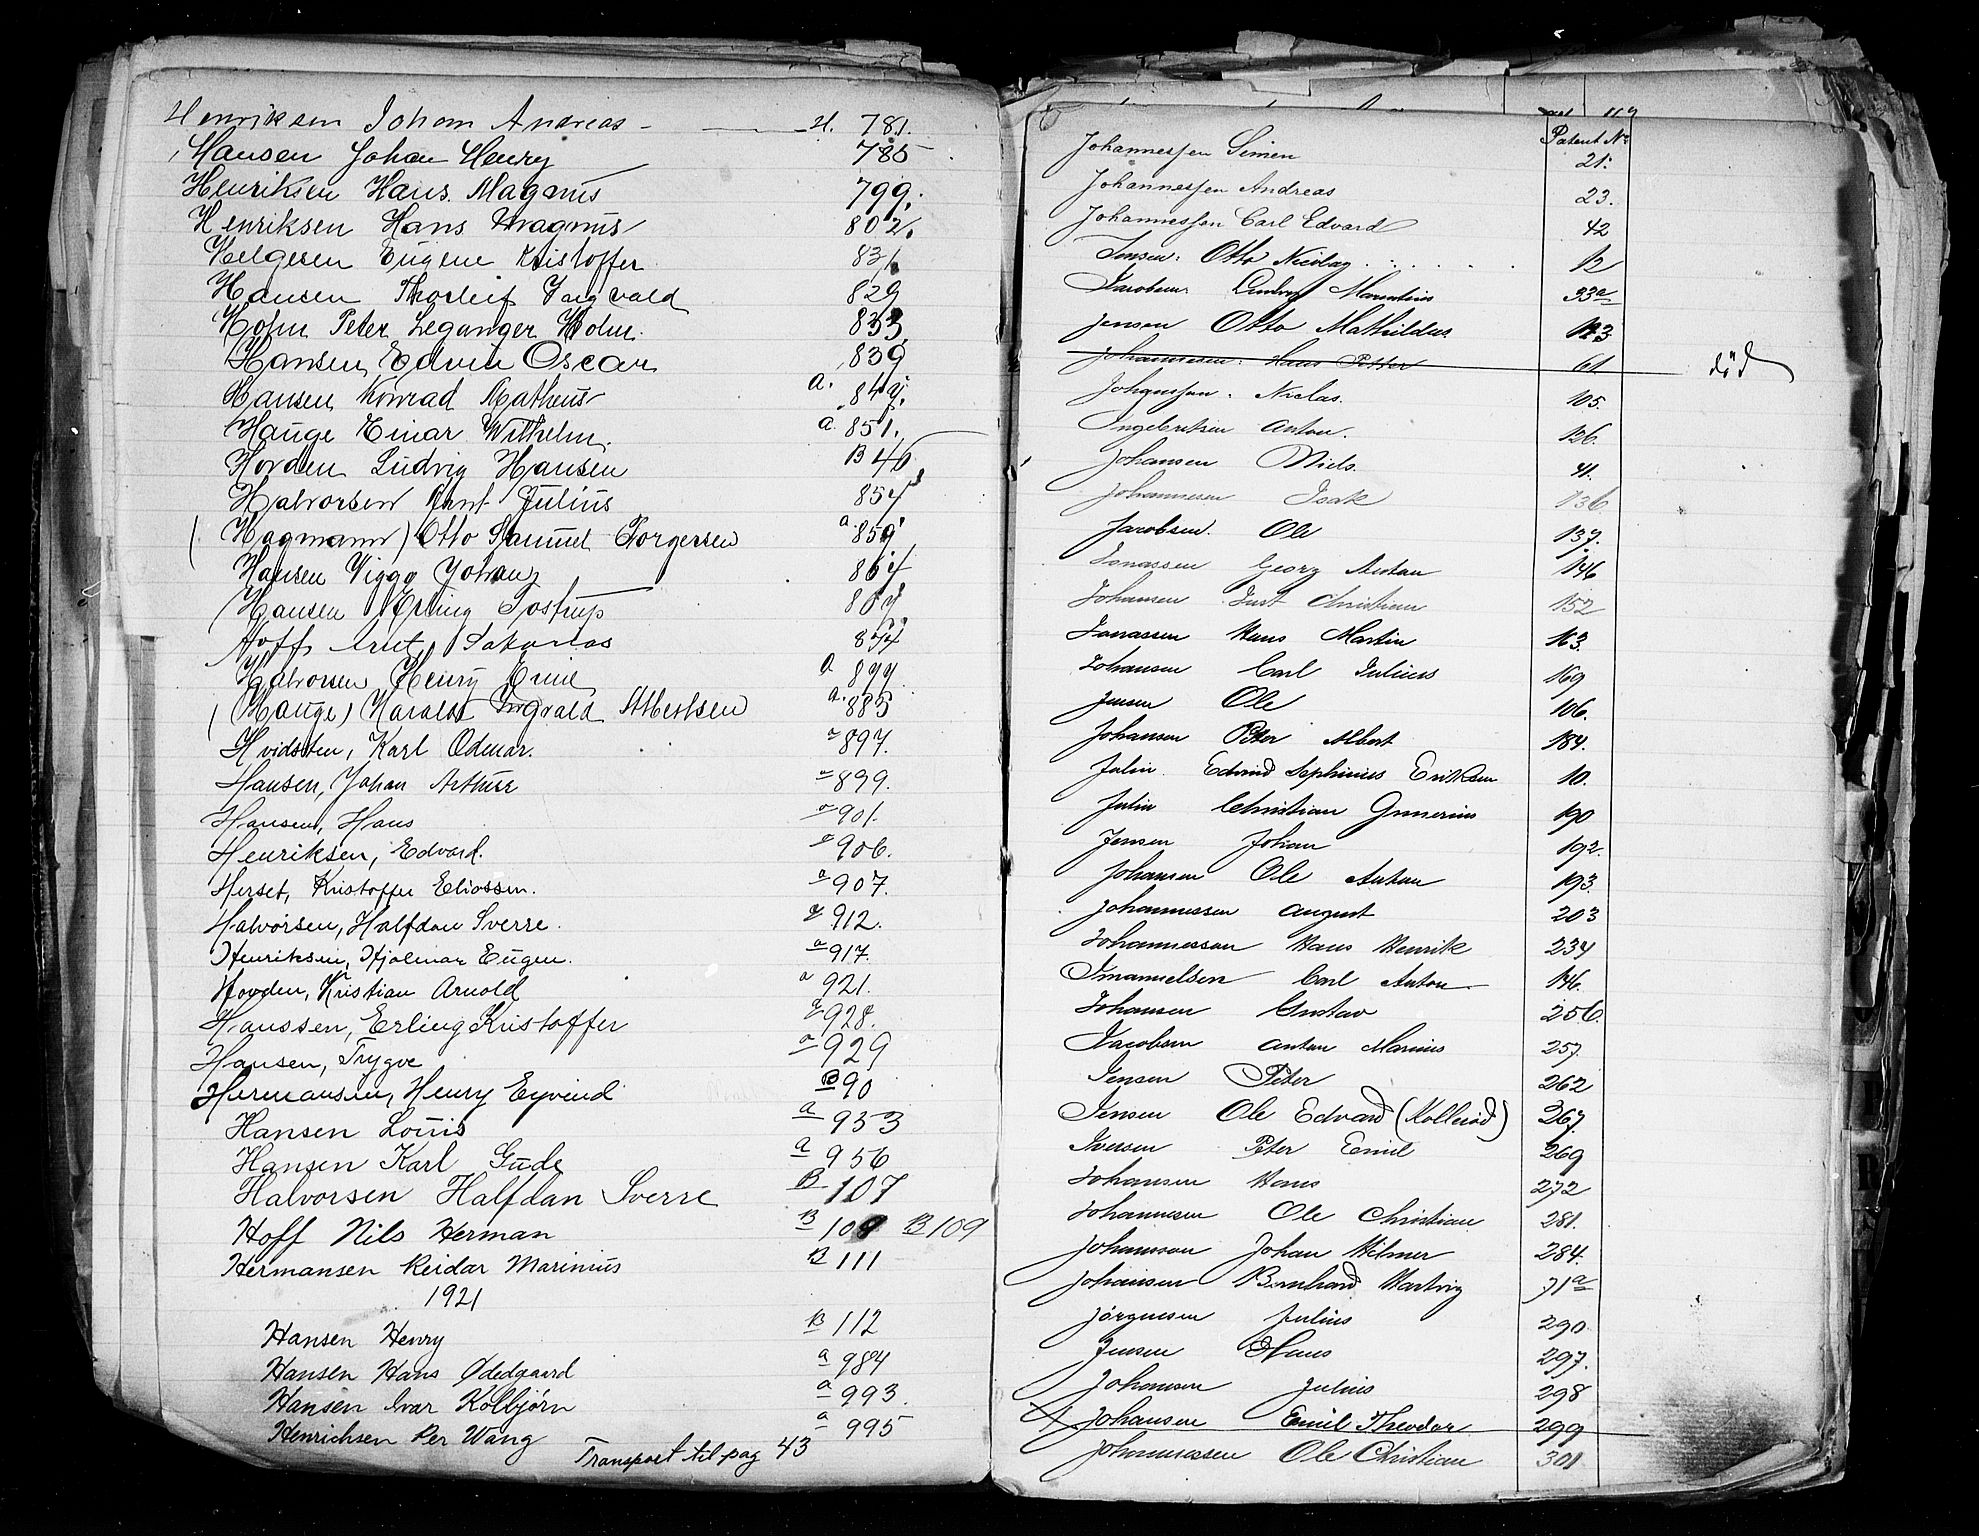 Henriksen Johan Andreas - H. 781.
Hansen Johan Henry 785
Henriksen Hans. Magnus 799.
Henriksen Hans Magnus 802.
Helgesen Eugene Kristoffer 831
Hansen Thorleif Yngvald 829
Holm Peter Leganger Holm. 833
Hansen Edvin Oscar 839
Hansen Konrad Matheus a. 849.
Hauge Einar Wilhelm. a. 851.
Hovden Ludvig Hansen B 46
Halvorsen Arnt Julius 854
(Hagmann) Otto Samuel Torgersen a. 859
Hansen Viggo Johan 864
(Hansen) Erling Tostrup 867
Hoff 874
Halvorsen Henry Emil a 899
(Hauge) Harald Ingvald Albertsen a. 885
Hvidsten, Karl Odmar. a 897.
Hansen, Johan Arthur a 899.
Hansen, Hans a 901.
Henriksen, Edvard. a 906.
Herset, Kristoffer Eliassen. a 907.
Halvorsen, Halfdan Sverre. a 912.
Henriksen, Hjalmar Eugen. a 917.
Hovden, Kristian Arnold a 921.
Hanssen, Erling Kristoffer a 928.
Hansen, Trygve a 929
Hermansen, Henry Eyvind B 90
Hansen Louis a 953
Hansen Karl Gude a 956
Halvorsen Halfdan Sverre B 107
Hoff Nils Herman B 108 B 109
Hermansen Reidar Marinius B 111
1921
Hansen Henry B 112
Hansen Hans Ødedgaard a 984
Hansen Ivar Kolbjørn a 993.
Henrichsen Per Wang a 995
Transport til pag 43
Patent No
Johannessen Simen 21.
Johannessen Andreas 23.
Johannessen Carl Edvard 42
Jensen. Otto Nicolay 12
Jacobsen Ludvig Marentius 33a
Jensen Otto Mathildus. 123
Johannesen. Hans Petter 61 död
Johanssen. Niclas. 105.
Ingebretsen Anton. 126.
Johansen Niels. 41.
Johannesen Isak 136
Jacobsen. Ole 137.
Jonassen Georg Anton 146
Johansen Just Christian 152
Jonassen Hans Martin 163.
Johansen Carl Julius 169
Jensen Ole 106.
Johansen Peter Albert 184.
Julin. Edvind Sephinius Eriksen 10.
Julin Christian Gunerius 190
Jensen Johan 192.
Johansen Ole Anton 193.
Johannessen August 203
Johannessen Hans Henrik 234
Imanuelsen Carl Anton 146.
Johansen Gustav 256.
Jacobsen Anton Marius 257.
Jensen Peter 262
Jensen Ole Edvard (Kolleröd) 267.
Iversen Peter Emil 269
Johansen Hans 272
Johannesen Ole Christian 281.
Johannson Johan Hilmer 284.
Johansen Bernhard Hartvig 71a
Jørgensen Julius 290.
Jensen Hans 297.
Johansen Julius 298
Johansen Emil Theodor 299
Johannessen Ole Christian 301